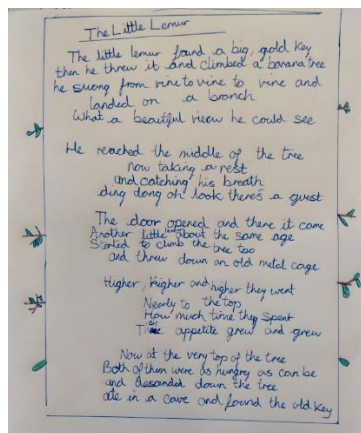 The Little Lemur
The little lemur found a big, gold key
then he threw it and climbed a banana tree
he swong from vine to vine to vine and
landed on a branch
What a beautiful view he could see
He reached the middle of the tree
now taking a rest
and catching his breath
ding dong oh look there's a guest
The door opened and there it came
Another little about the same age
Started to climb the tree too
and threw down an old metal cage
Higher, higher and higher they went
Nearly to the top
How much time they spent
appetite grew and grew
Now at the very top of the tree
Both of them were as hungry as can be
and desended down the tree
ate in a cave and found the old key